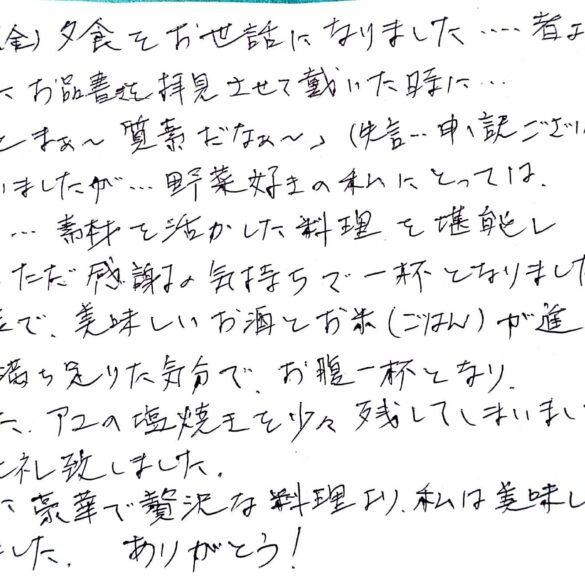 金) 夕食をお世話になりました…. 者
お品書を拝見させて戴いた時に…
とまぁ〜質素だなぁ〜」(失言… 申し訳ござい
いましたが… 野菜好きの私にとっては、
… 素材を活かした料理を堪能し
ただ感謝の気持ちで一杯となりました
で、美味しいお酒とお米(ごはん)が進
満ち足りた気分で、お腹一杯となり、
た、アユの塩焼きを少々残してしまいまし
礼致しました。
に豪華で贅沢な料理より、私は美味し
した。 ありがとう!